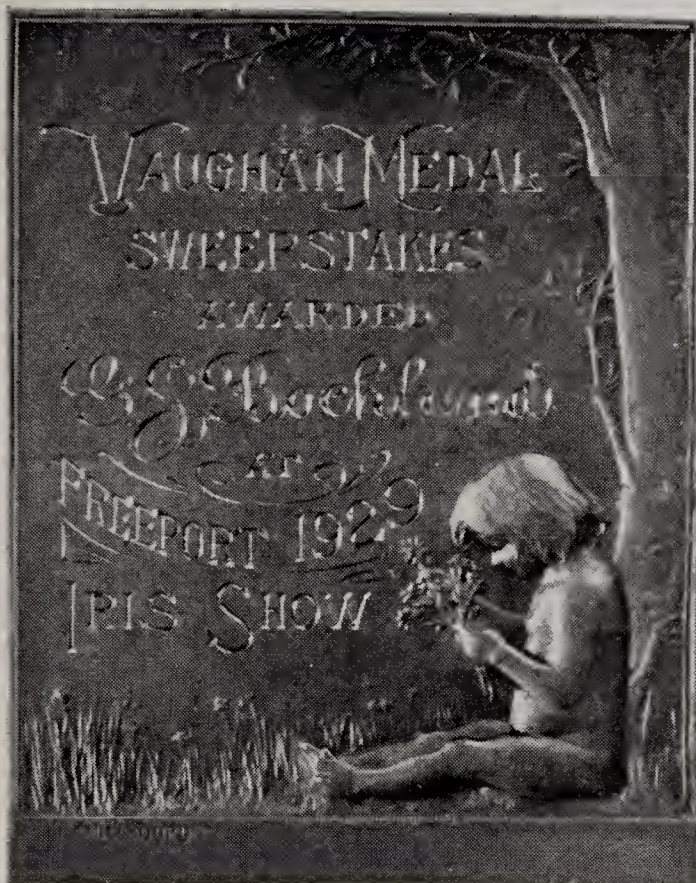 VAUGHAN MEDAL
SWEEPSTAKES
AWARDED
AT
FREEPORT 1929
IRIS SHOW